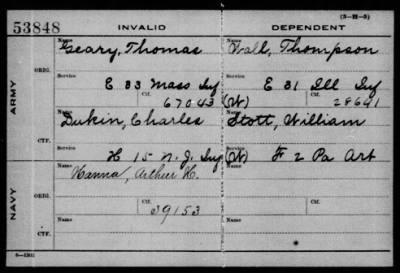 (3-H-3)
53848 INVALID DEPENDENT
Name Name
Geary, Thomas Wall, Thompson
ORIG.
Service Service
E 33 Mass Inf E 31 Ill Inf
ARMY
Ctf. Ctf.
67043 (W) 28641
Name Name
Dukin, Charles Stott, William
Service Service
CTF.
H 15 N.J. Inf (W) F 2 Pa Art
Name Name
Hanna, Arthur H.
ORIG.
NAVY
Ctf. Ctf.
39153
Name Name
CTF.